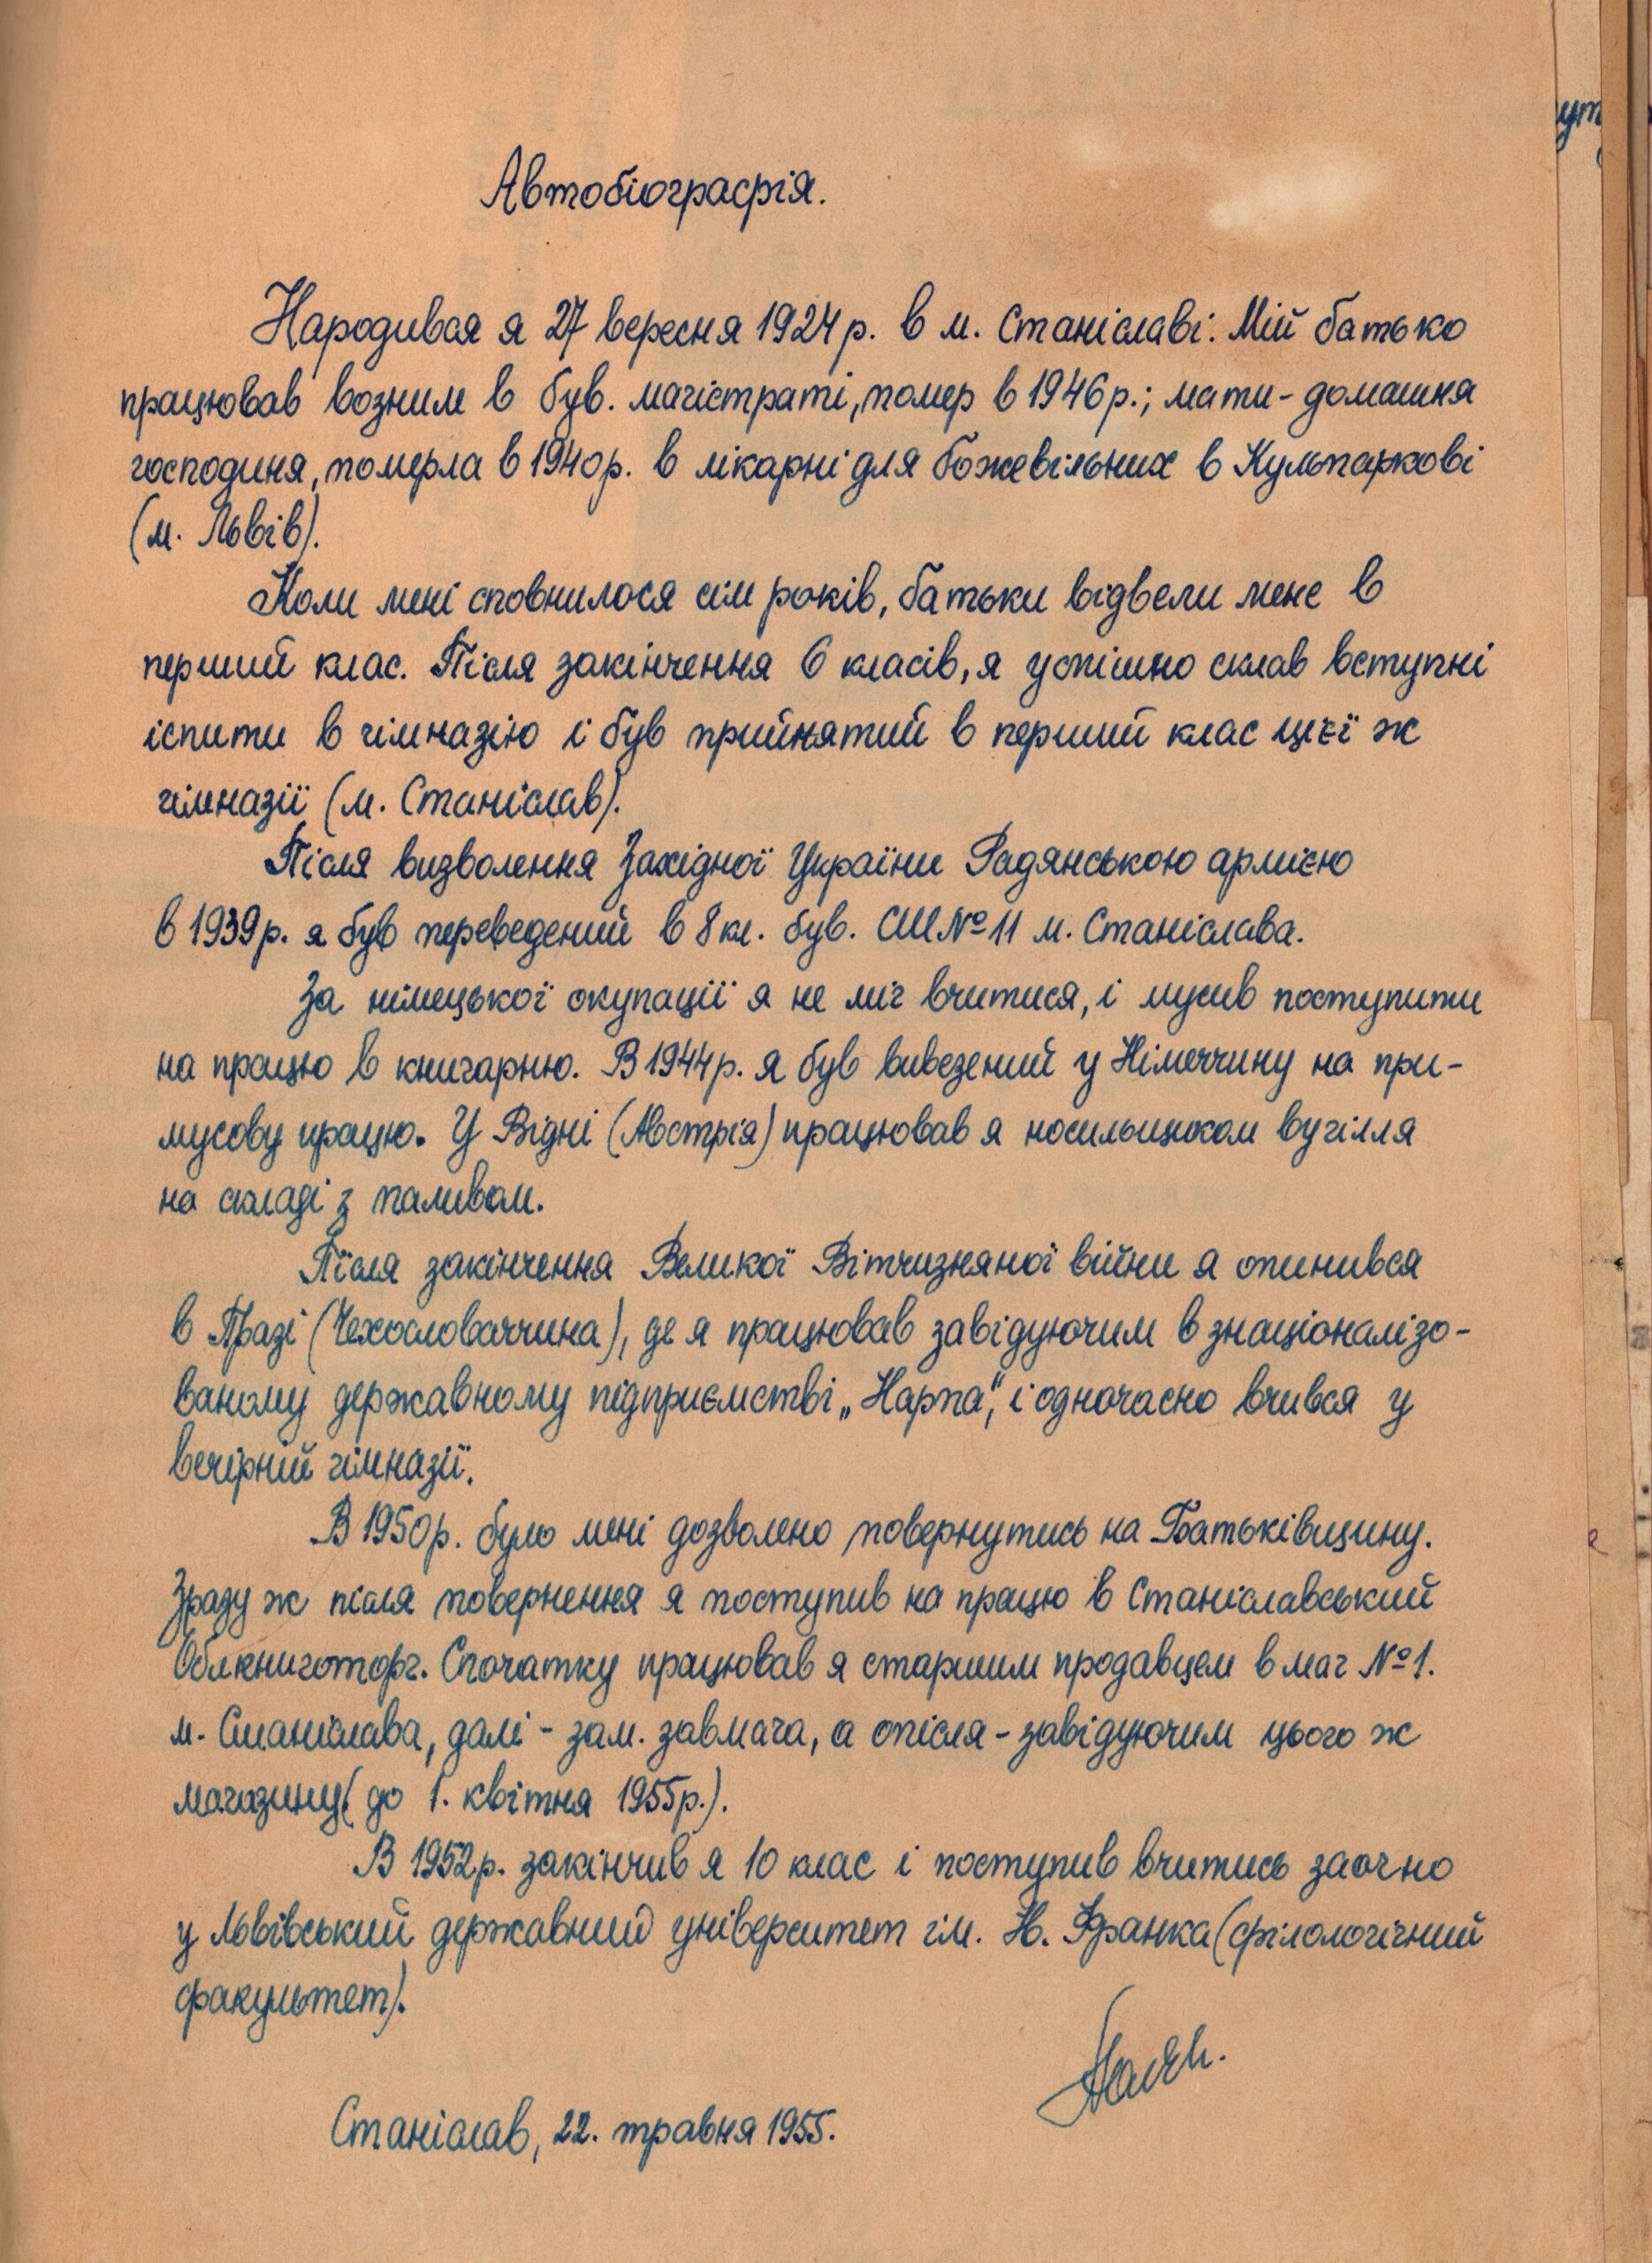 ут
Автобіографія.
Народився я 27 вересня 1924 р. в м. Станіславі. Мій батько
працював возним в був. магістраті, помер в 1946 р.; мати - домашня
господиня, померла в 1940 р. в лікарні для божевільних в Кульпаркові
(м. Львів).
Коли мені сповнилося сім років, батьки відвели мене в
перший клас. Після закінчення 6 класів, я успішно склав вступні
іспити в гімназію і був прийнятий в перший клас цієї ж
гімназії (м. Станіслав).
Після визволення Західної України Радянською армією
в 1939 р. я був переведений в 8 кл. був. СШ № 11 м. Станіслава.
За німецької окупації я не міг вчитися, і мусив поступити
на працю в книгарню. В 1944 р. я був вивезений у Німеччину на при-
мусову працю. У Відні (Австрія) працював я носильщиком вугілля
на складі з паливом.
Після закінчення Великої Вітчизняної війни я опинився
в Празі (Чехословаччина), де я працював завідуючим в знаціоналізо-
ваному державному підприємстві „Нарпа", і одночасно вчився у
вечірній гімназії.
В 1950 р. було мені дозволено повернутись на Батьківщину.
Зразу ж після повернення я поступив на працю в Станіславський
Облкниготорг. Спочатку працював я старшим продавцем в маг № 1.
м. Станіслава, далі - зам. завмага, а опісля - завідуючим цього ж
магазину (до 1. квітня 1955 р.).
В 1952 р. закінчив я 10 клас і поступив вчитись заочно
у Львівський державний університет ім. І. Франка (філологічний
факультет).
Станіслав, 22. травня 1955.